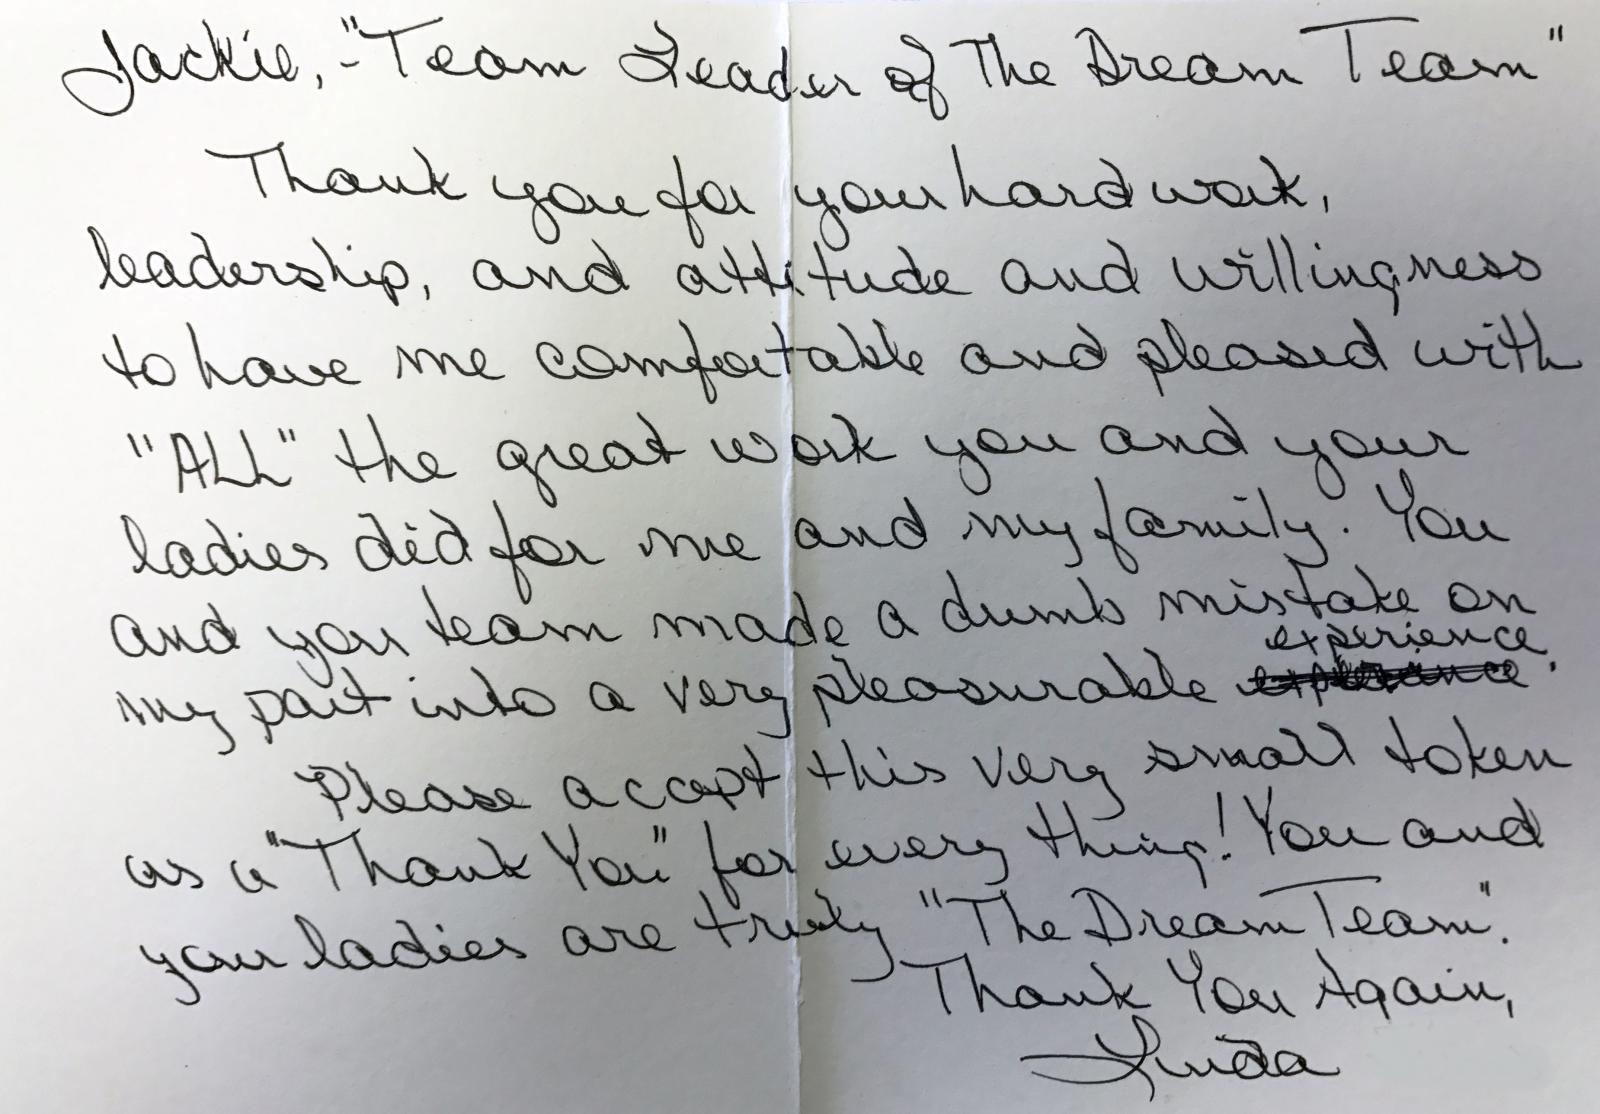 Jackie, - "Team Leader of The Dream Team"
Thank you for your hard work,
leadership, and attitude and willingness
to have me comfortable and pleased with
"ALL" the great work you and your
ladies did for me and my family. You
and your team made a dumb mistake on
experience
my part into a very pleasurable .
Please accept this very small token
as a "Thank You" for every thing! You and
your ladies are truly "The Dream Team".
Thank You Again,
Linda